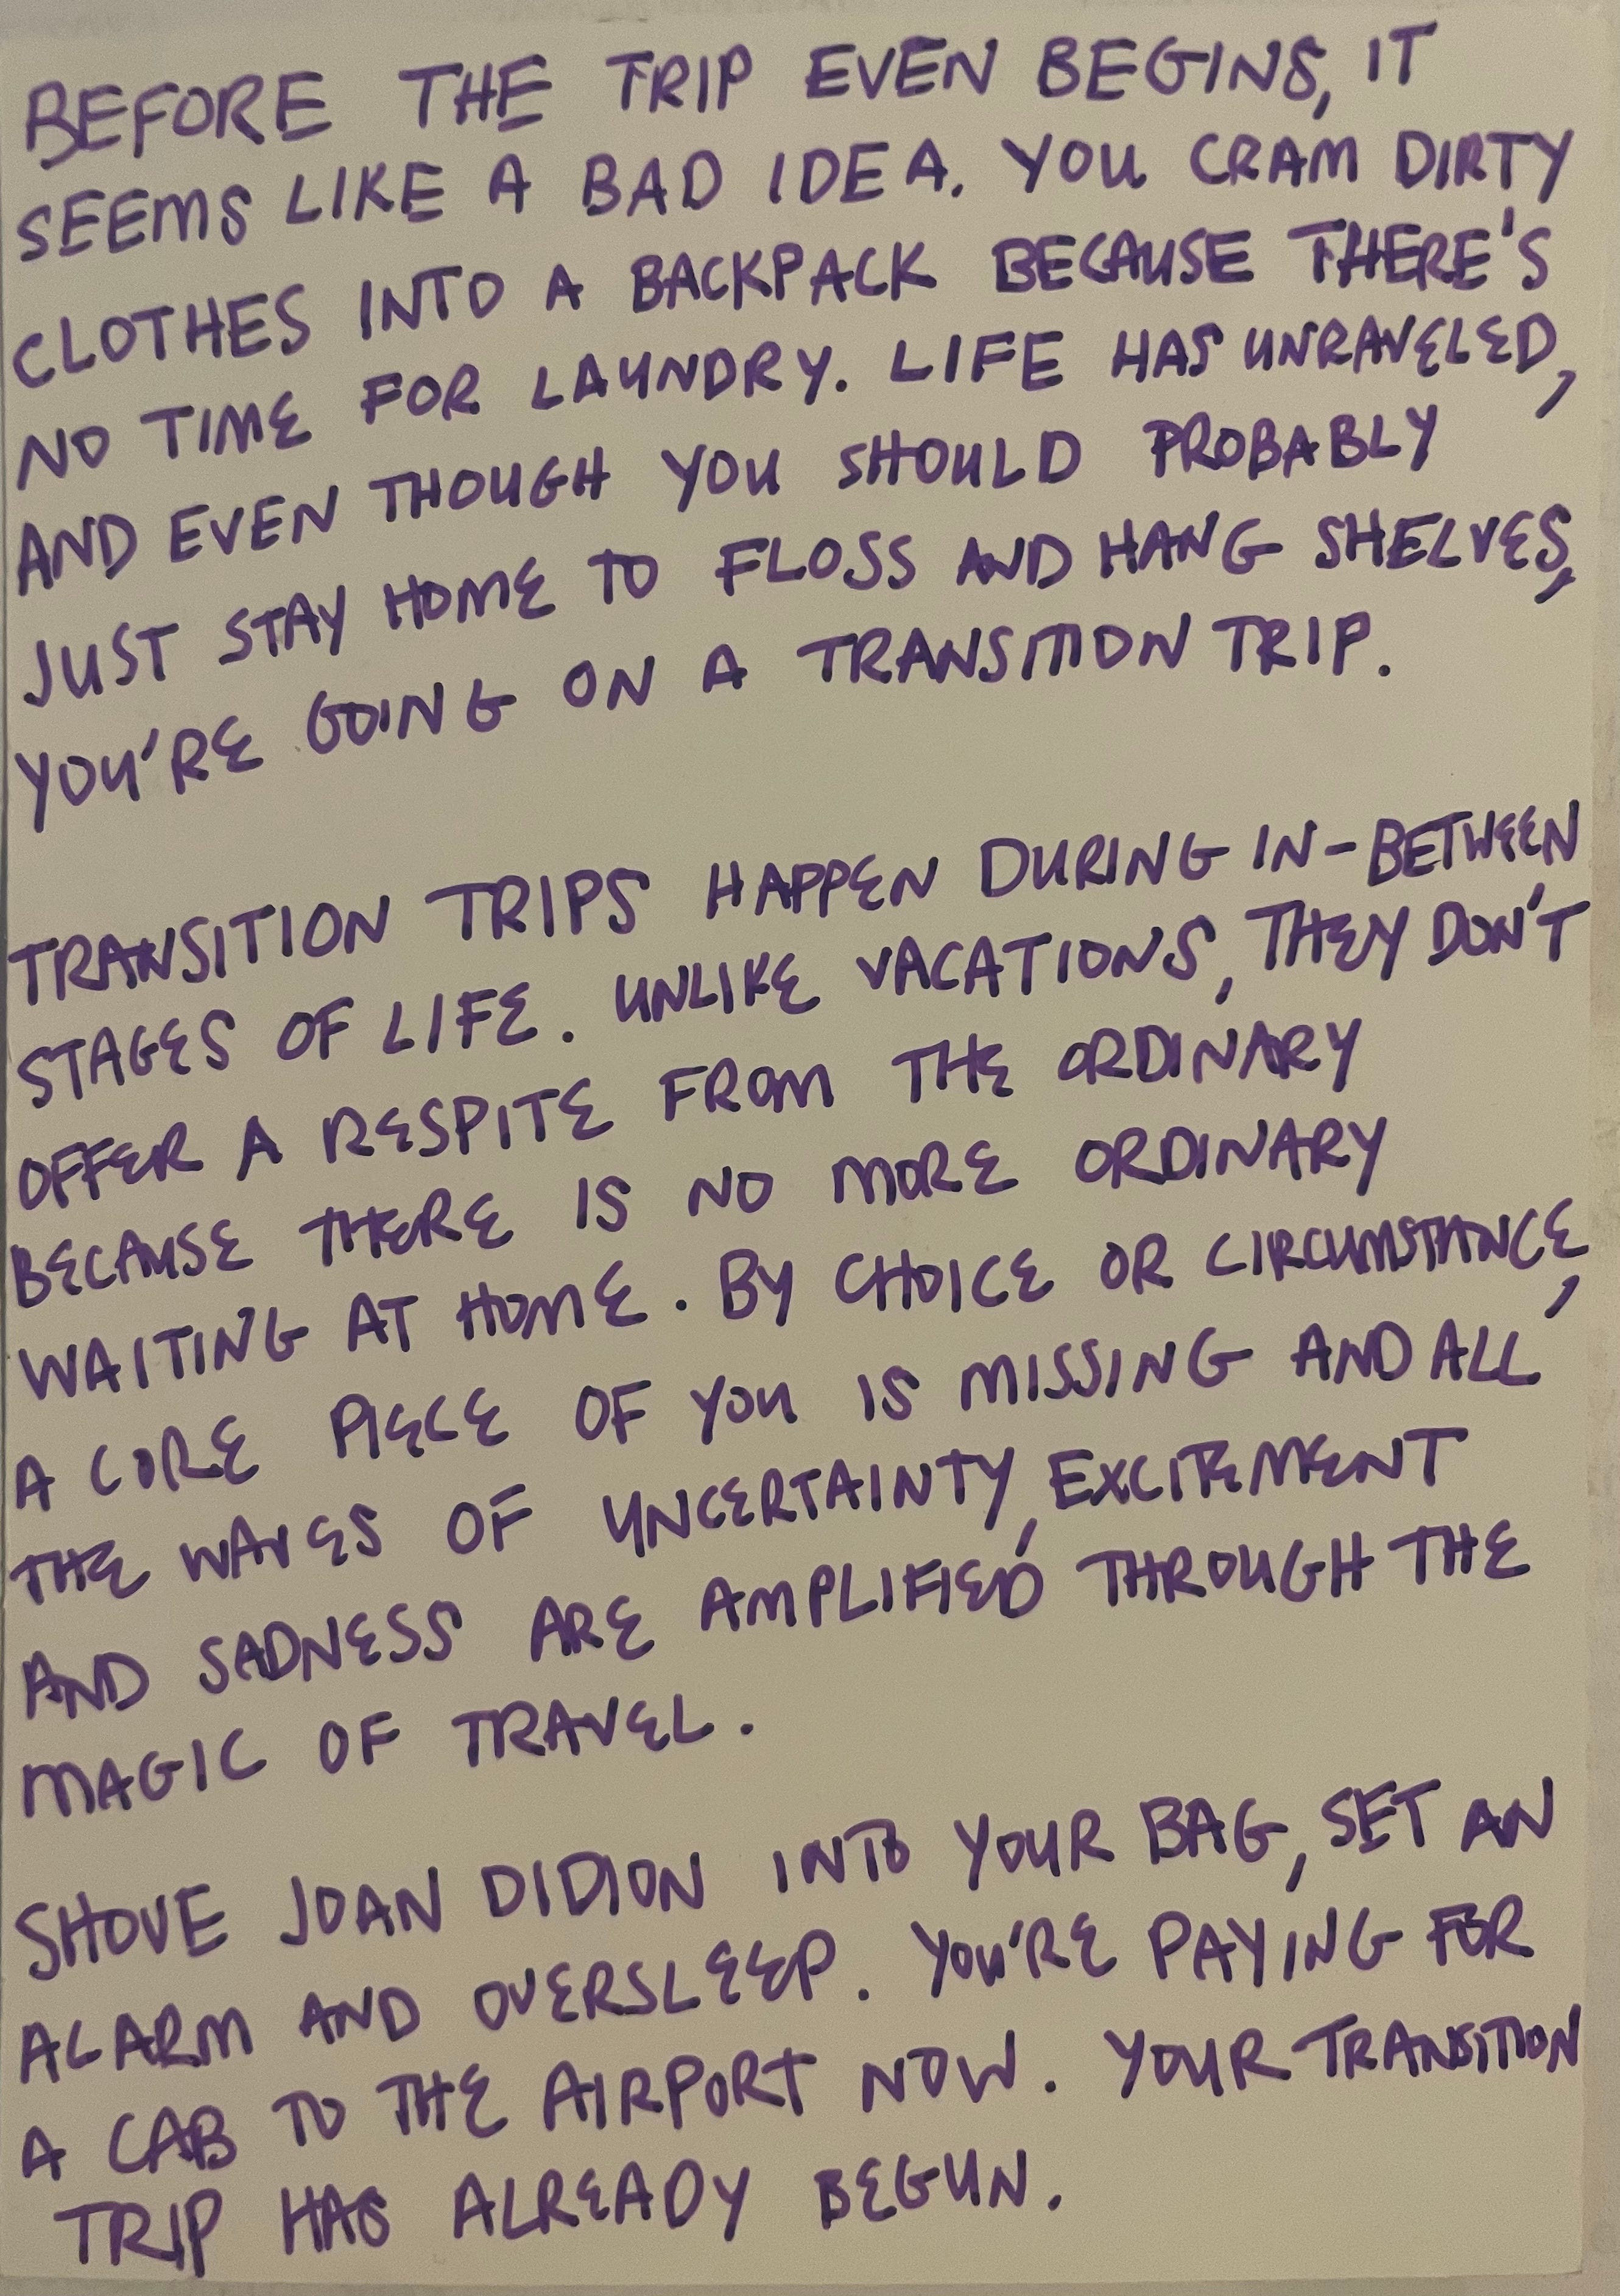 BEFORE THE TRIP EVEN BEGINS, IT
SEEMS LIKE A BAD IDEA. YOU CRAM DIRTY
CLOTHES INTO A BACKPACK BECAUSE THERE'S
NO TIME FOR LAUNDRY. LIFE HAS UNRAVELED,
AND EVEN THOUGH YOU SHOULD PROBABLY
JUST STAY HOME TO FLOSS AND HANG SHELVES,
YOU'RE GOING ON A TRANSITION TRIP.
TRANSITION TRIPS HAPPEN DURING IN-BETWEEN
STAGES OF LIFE. UNLIKE VACATIONS, THEY DON'T
OFFER A RESPITE FROM THE ORDINARY
BECAUSE THERE IS NO MORE ORDINARY
WAITING AT HOME. BY CHOICE OR CIRCUMSTANCE,
A CORE PIECE OF YOU IS MISSING AND ALL
THE WAVES OF UNCERTAINTY, EXCITEMENT
AND SADNESS ARE AMPLIFIED THROUGH THE
MAGIC OF TRAVEL.
SHOVE JOAN DIDION INTO YOUR BAG, SET AN
ALARM AND OVERSLEEP. YOU'RE PAYING FOR
A CAB TO THE AIRPORT NOW. YOUR TRANSITION
TRIP HAS ALREADY BEGUN.